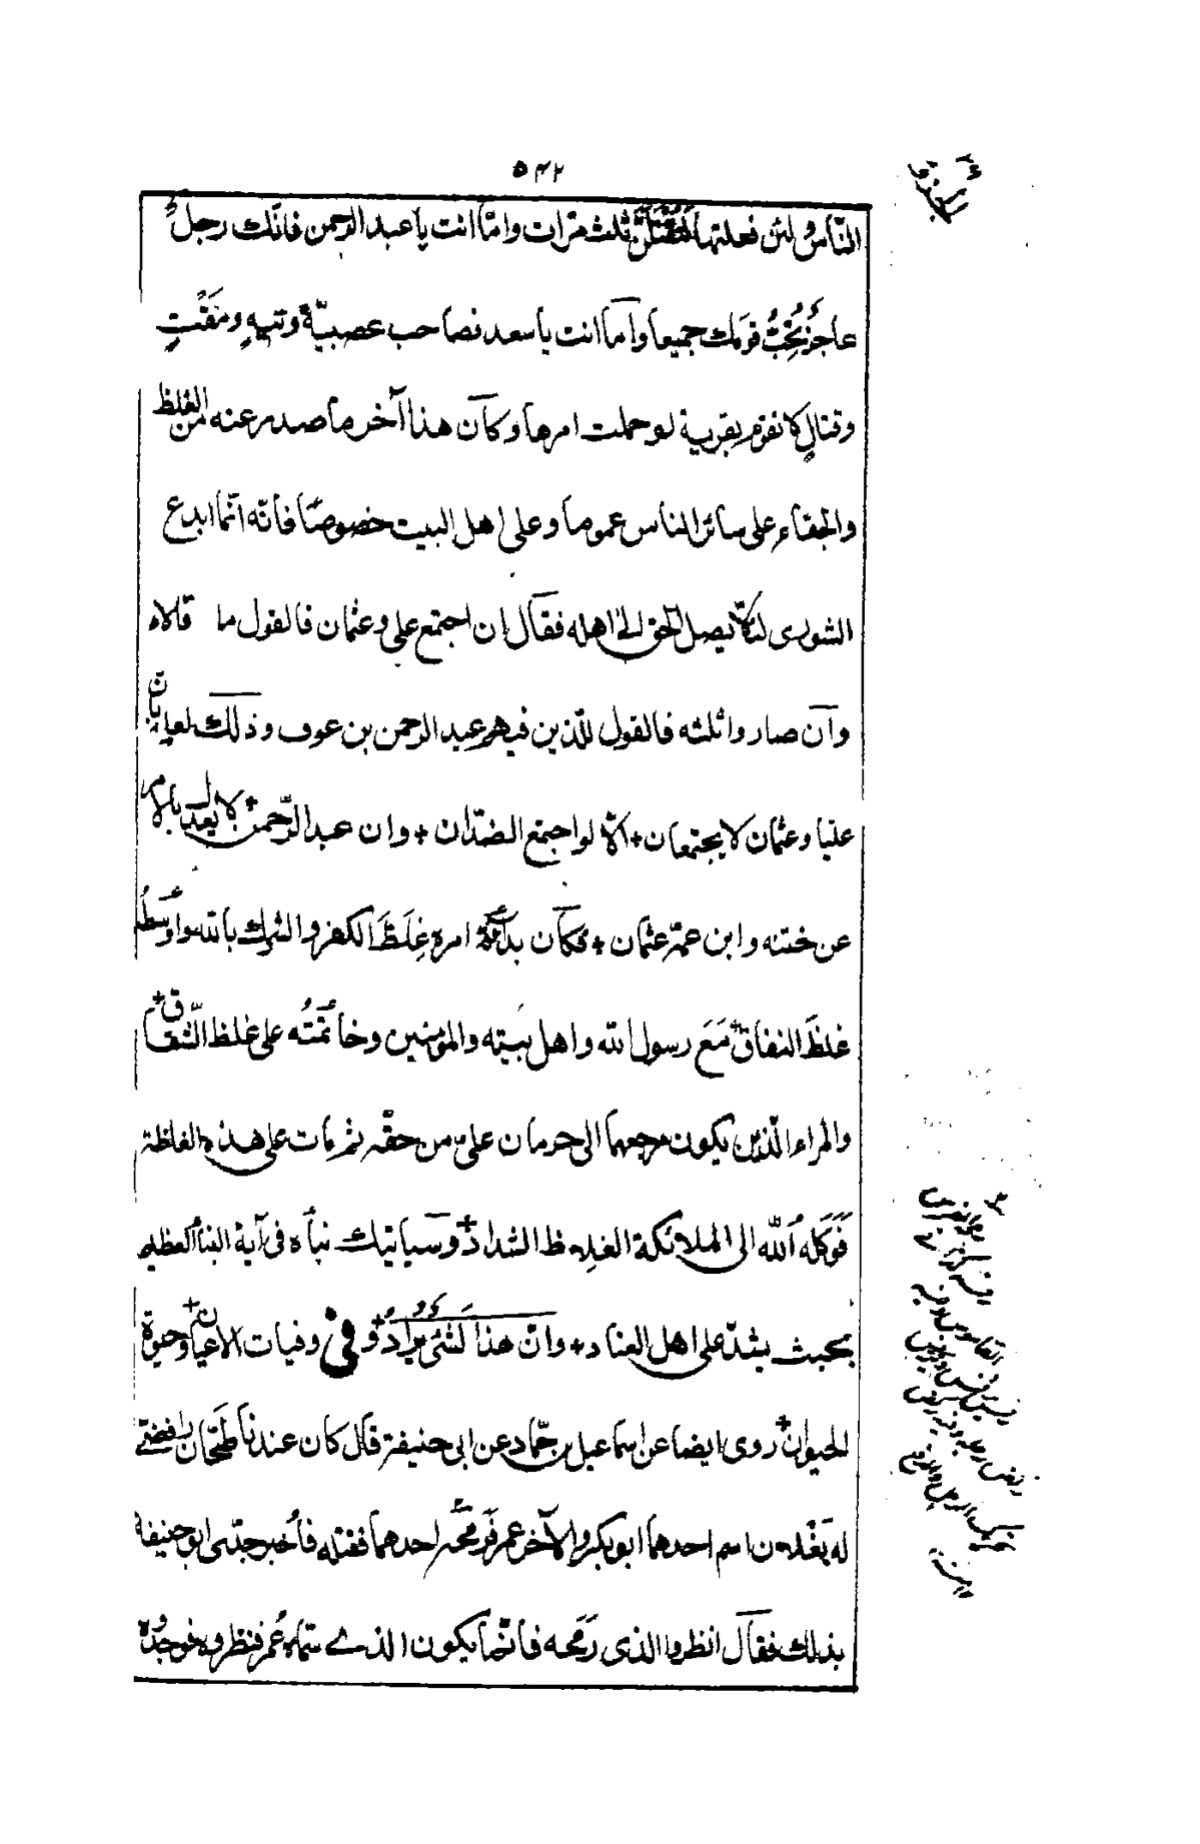 ٥٤٢
الجزء
٢٩
النّاسُ لئن فعلتها لتقتلنّ ثلث مرّات وامّا انت يا عبد الرحمن فانّك رجلٌ
عاجزٌ تُحِبُّ قومك جميعا وامّا انت يا سعد فصاحب عصبيّةٍ وتيهٍ ومَقْتٍ
وقتالٍ لا تقوم بقرية لو حملت امرها وكان هذا آخر ما صدر عنه من الغلظ
والجفاء على سائر الناس عموما وعلى اهل البيت خصوصًا فانّه انّما ابدع
الشورى لئلّا يصل الحق الى اهله فقال ان اجتمع علي وعثمان فالقول ما قالاه
وان صاروا ثلثه فالقول للّذين فيهم عبد الرحمن بن عوف وذلك لعلمه بانّ
عليا وعثمان لا يجتمعان + الّا لو اجتمع الضدّان + وان عبد الرّحمن + لا يعدل بالامر
عن ختنه وابن عمّه عثمان + فكان بدأة امره غِلَظَ الكفر والشرك بالله واوسطه
غلظَ النفاق + مَعَ رسول الله واهل بيته والمؤمنين وخاتمتُه على غلظ الشّقاق +
والمراء الّذين يكون مرجعهما الى حرمان عليّ من حقّه ثمّ مات على هذه الغلظة
فَوَكَلَه اللّٰه الى الملائكة الغلاظ الشداد + وسيأتيك نبأه فى آية النبأ العظيم
بحيث يشدّ على اهل العناد + وانّ هذا لَشَىْءٌ يُرَادُ + وفى وفيات الاعيان + وحيوة
الحيوان + روى ايضا عن اسماعيل بن حمّاد عن ابى حنيفة قال كان عندنا طَحّان رافضىّ
له بَغْلان اسم احدهما ابو بكر والآخر عمر فرَمَحَه احدهما فقتله فأُخبر جدّى ابو حنيفة
بذلك فقال انظروا الذى رَمَحه فانّما يكون الذى سمّاه عُمر فنظروه فوجدوه